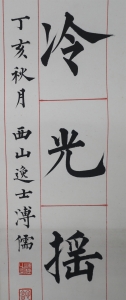 冷光摇
丁亥秋月 西山逸士溥儒